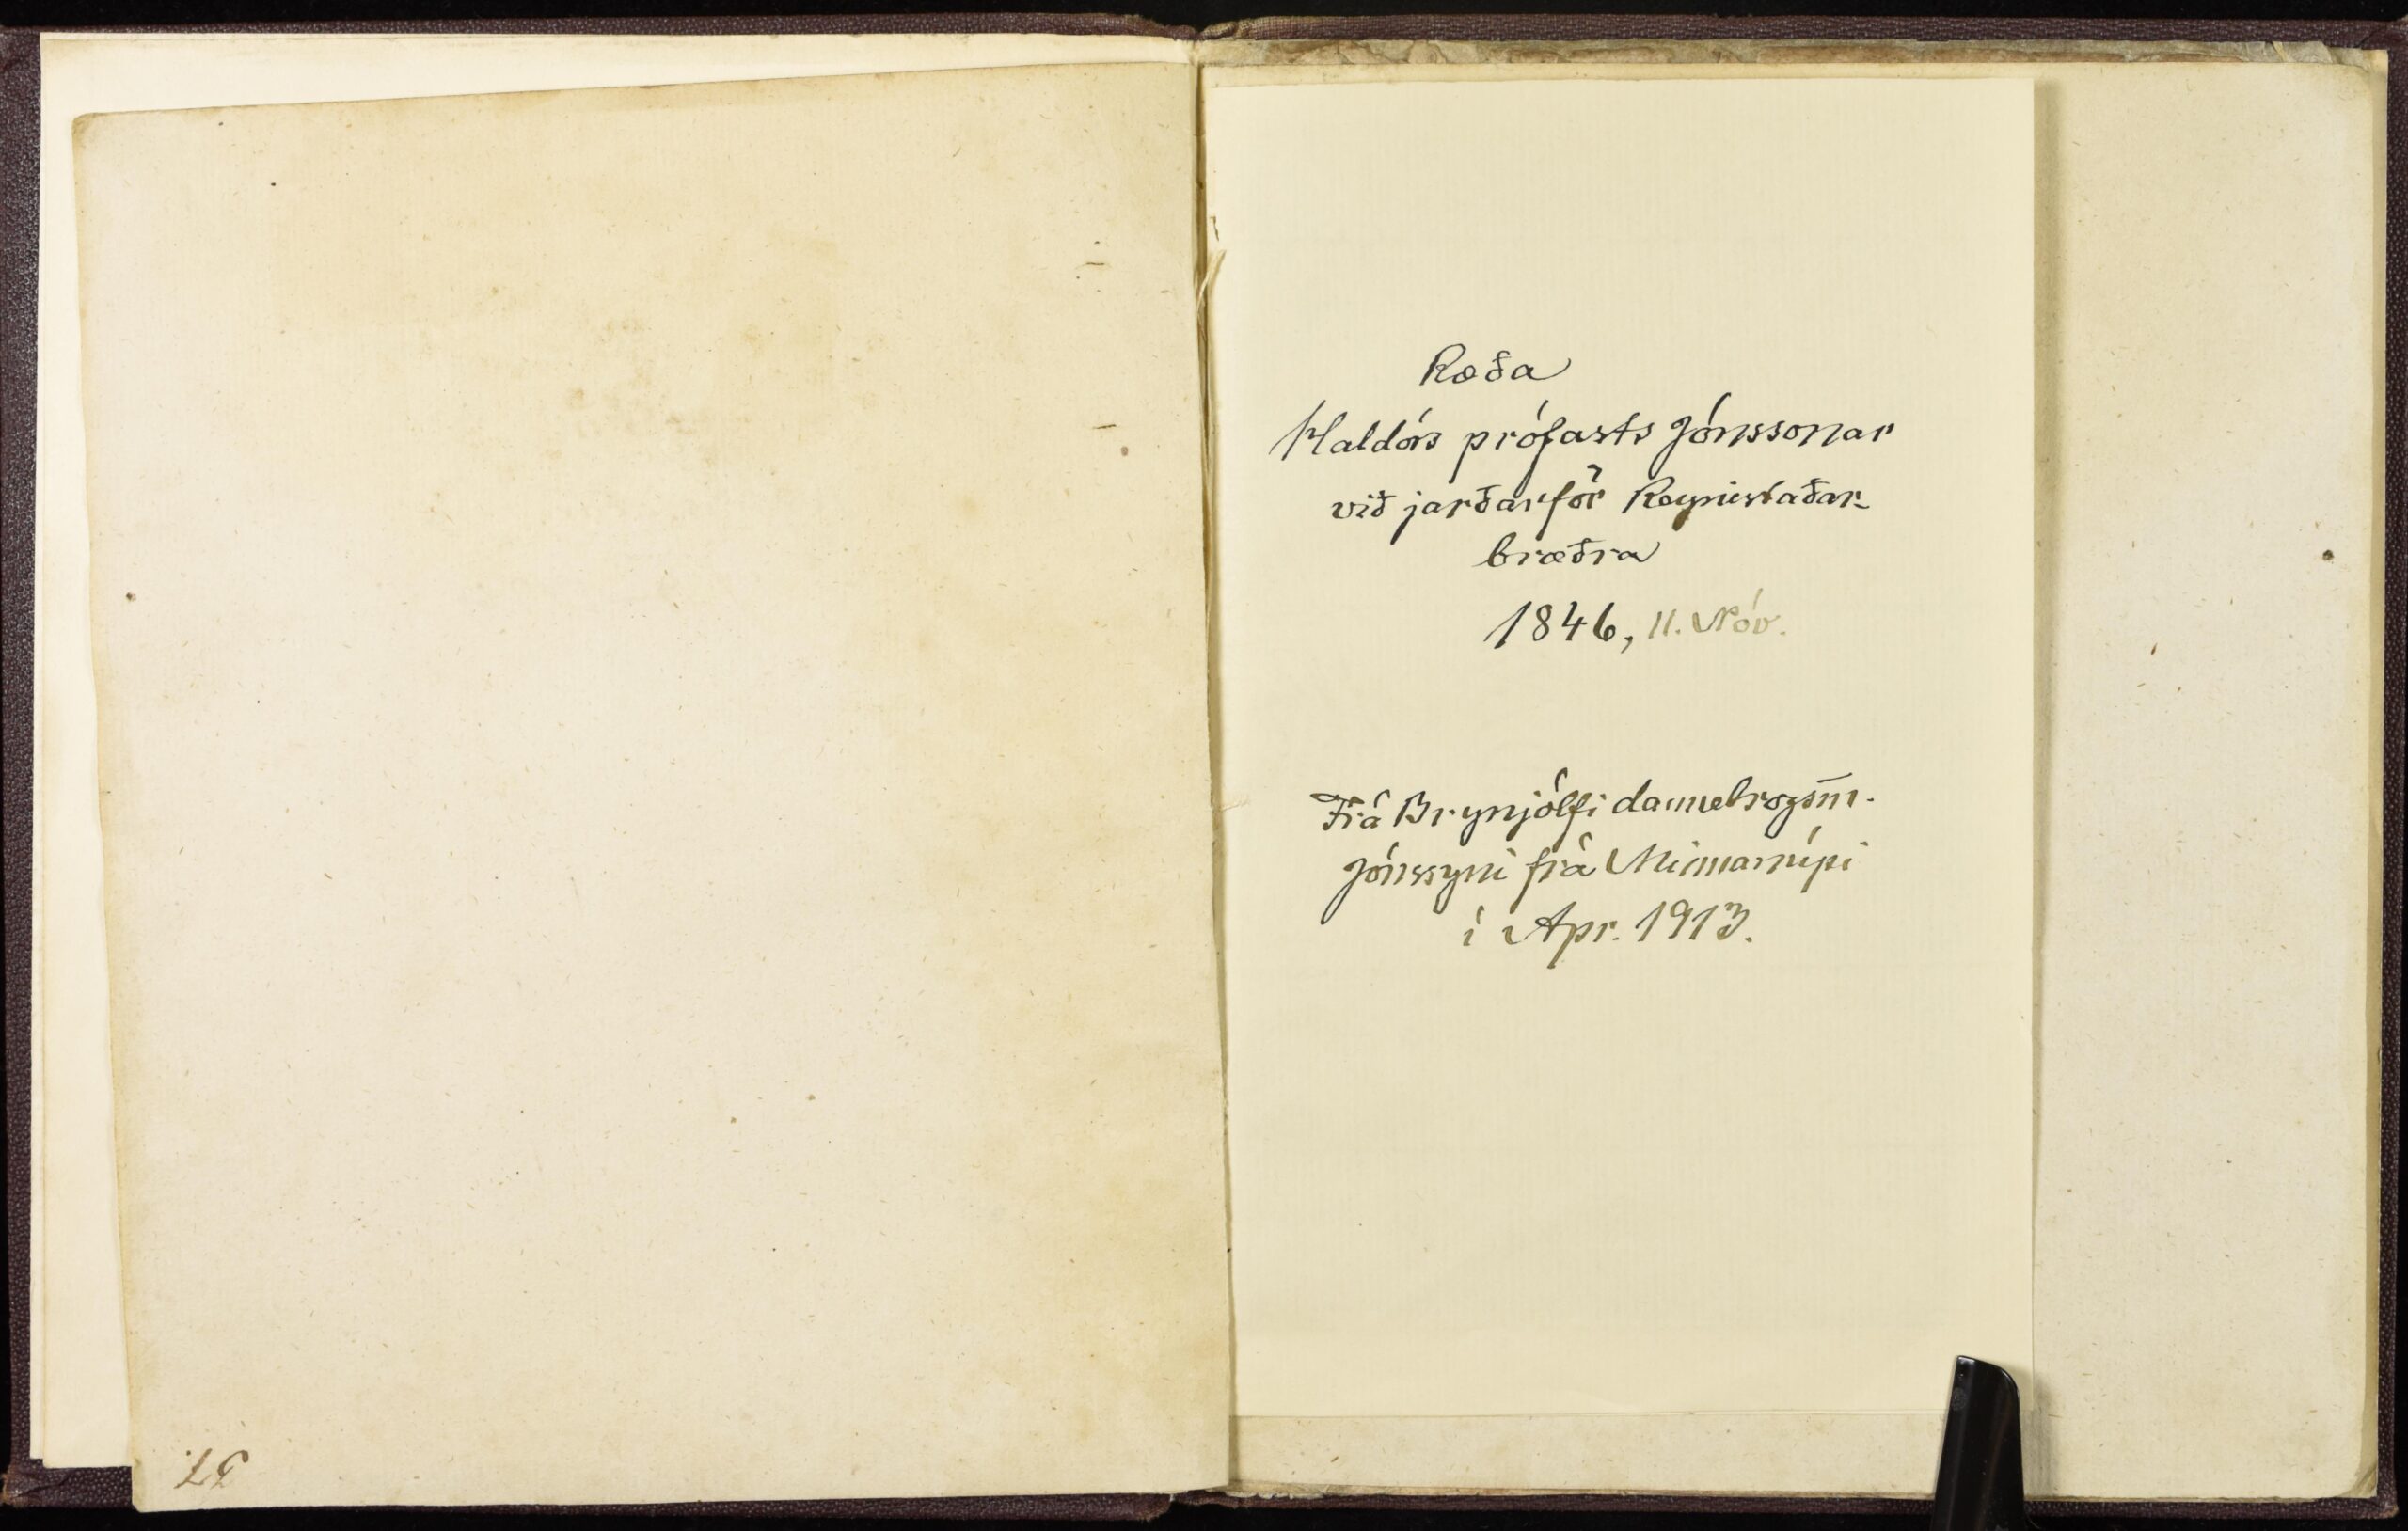 Ræða
Haldórs prófasts Jónssonar
við jarðarför Reynistaðar-
bræðra
1846, 11. Nóv.
Frá Brynjólfi dannebrogsm̄.
Jónssyni frá Minnanúpi
í Apr. 1913.
57.